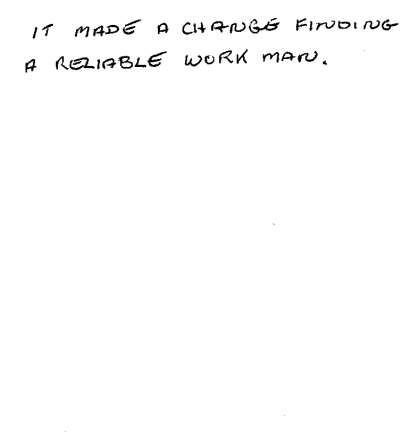 IT MADE A CHANGE FINDING
A RELIABLE WORK MAN.